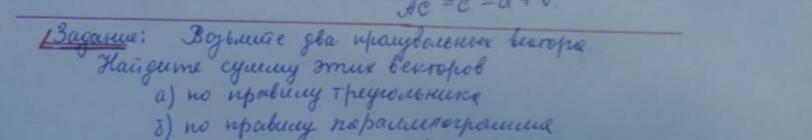 AC = c = a + b.
Задание: Возьмите два произвольных вектора.
Найдите сумму этих векторов
а) по правилу треугольника
б) по правилу параллелограмма.